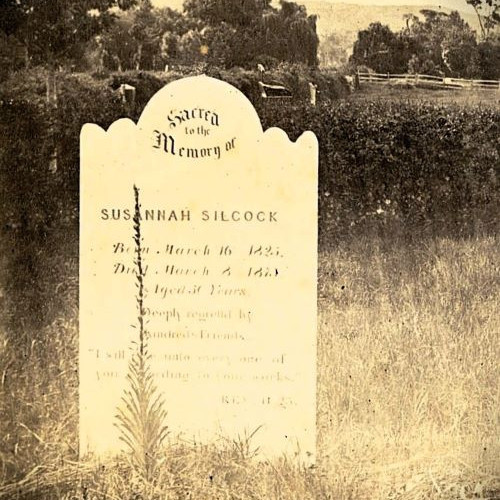 Sacred
to the
Memory of
SUSANNAH SILCOCK
Born March 16 1825.
Died March 8 1875
Aged 50 Years.
Deeply regretd by
Friends.
"I will unto every one of
you according to your works."
REV. 11.23.